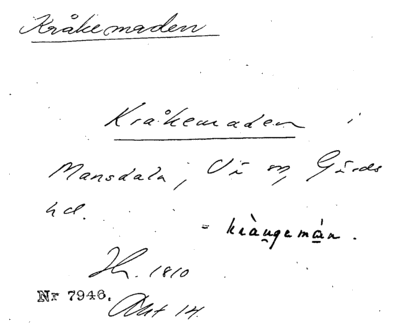 Kråkemaden
Kråkemaden i
Mansdala, Vi sn, Gärds
hd.
= kràngemán.
Hr. 1810
Nr 7946. Akt 14.